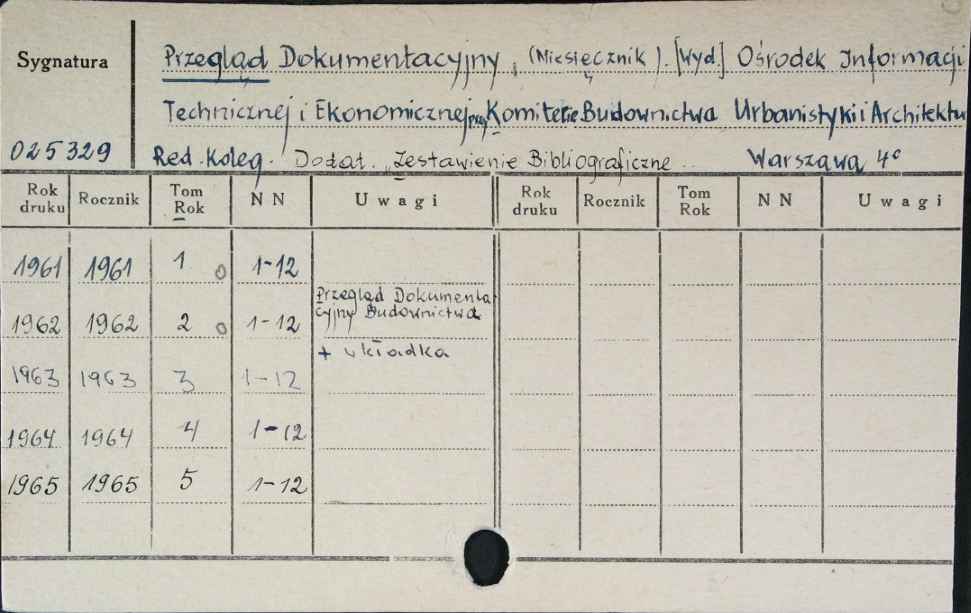 Sygnatura
Przegląd Dokumentacyjny, (Miesięcznik). [Wyd.] Ośrodek Informacji
Technicznej i Ekonomicznej przy Komitecie Budownictwa Urbanistyki i Architektu
025329 Red. Koleg. Dodat. Zestawienie Bibliograficzne Warszawa 4°
Rok druku Rocznik Tom Rok NN Uwagi Rok druku Rocznik Tom Rok NN Uwagi
1961 1961 1 0 1-12
Przegląd Dokumenta
1962 1962 2 0 1-12 cyjny Budownictwa
+ wkładka
1963 1963 3 1-12
1964 1964 4 1-12
1965 1965 5 1-12